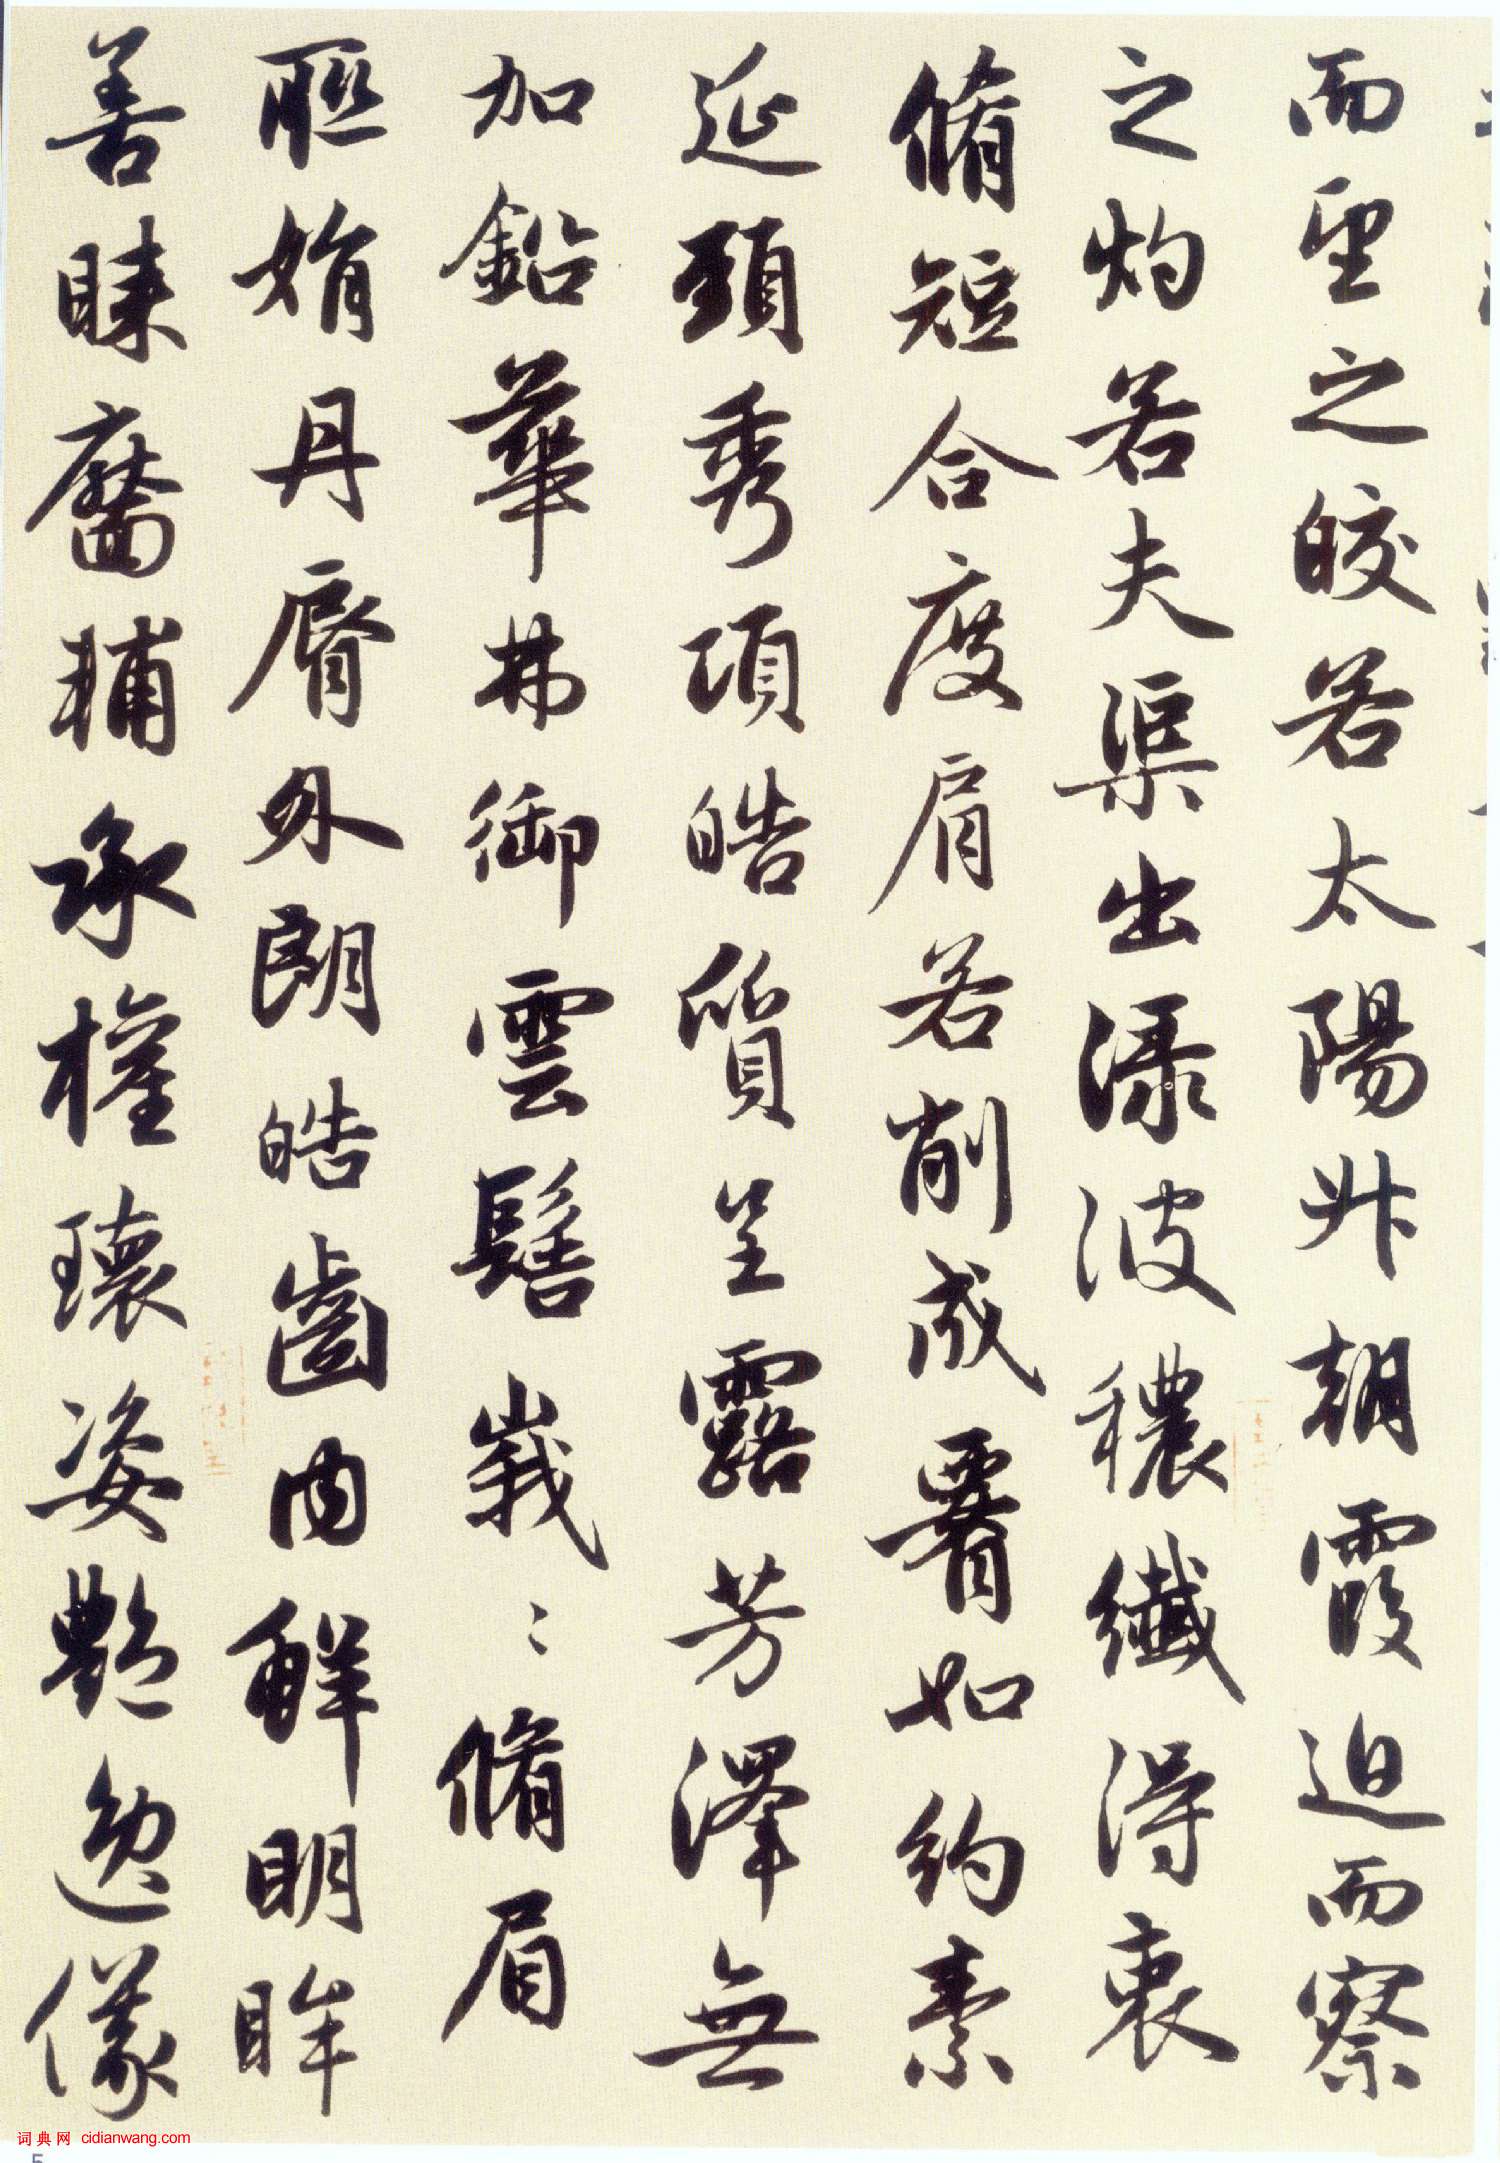 而望之皎若太陽升朝霞迫而察
之灼若夫渠出淥波穠纖得衷
脩短合度肩若削成腰如約素
延頸秀項皓質呈露芳澤無
加鉛華弗御雲髻峩〻脩眉
聯娟丹脣外朗皓齒內鮮明眸
善睞靨輔承權瓌姿艷逸儀
词典网 cidianwang.com